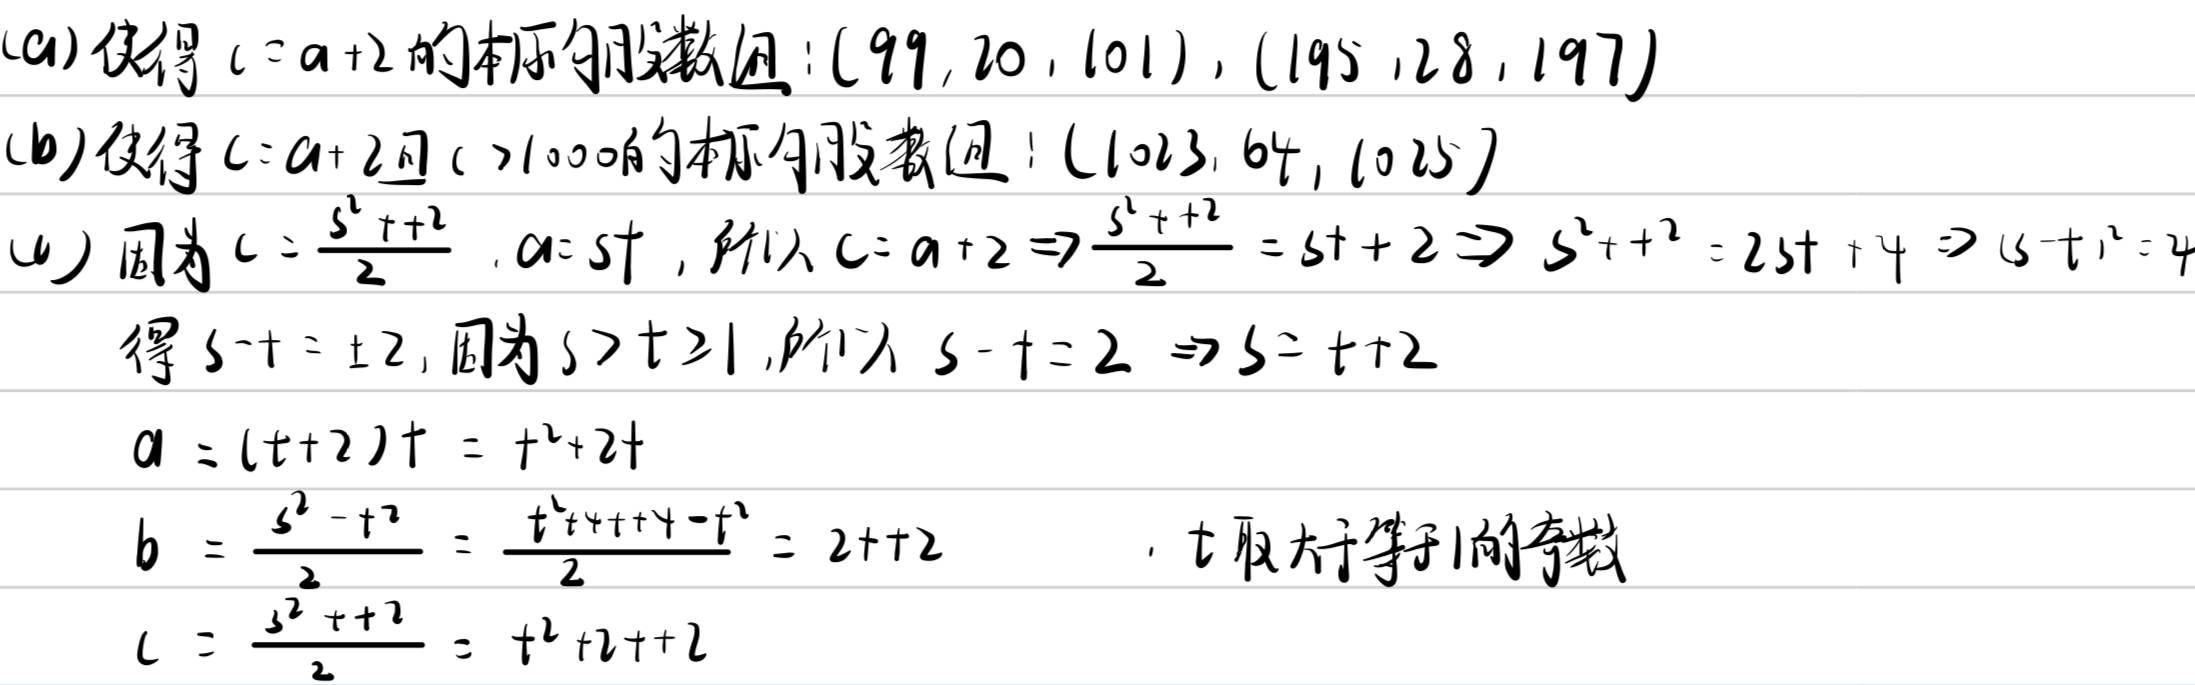 (a) 使得 c=a+2 的本原勾股数组:(99,20,101),(195,28,197)
(b) 使得 c=a+2且c>1000的本原勾股数组:(1023,64,1025)
(c) 因为 c = \frac{s²+t²}{2} , a=st , 所以 c=a+2 ⇒ \frac{s²+t²}{2} = st+2 ⇒ s²+t² = 2st+4 ⇒ (s-t)²=4
得 s-t = ±2, 因为 s>t≥1, 所以 s-t=2 ⇒ s=t+2
a = (t+2)t = t²+2t
b = \frac{s²-t²}{2} = \frac{t²+4t+4-t²}{2} = 2t+2 , t取大于等于1的奇数
c = \frac{s²+t²}{2} = t²+2t+2